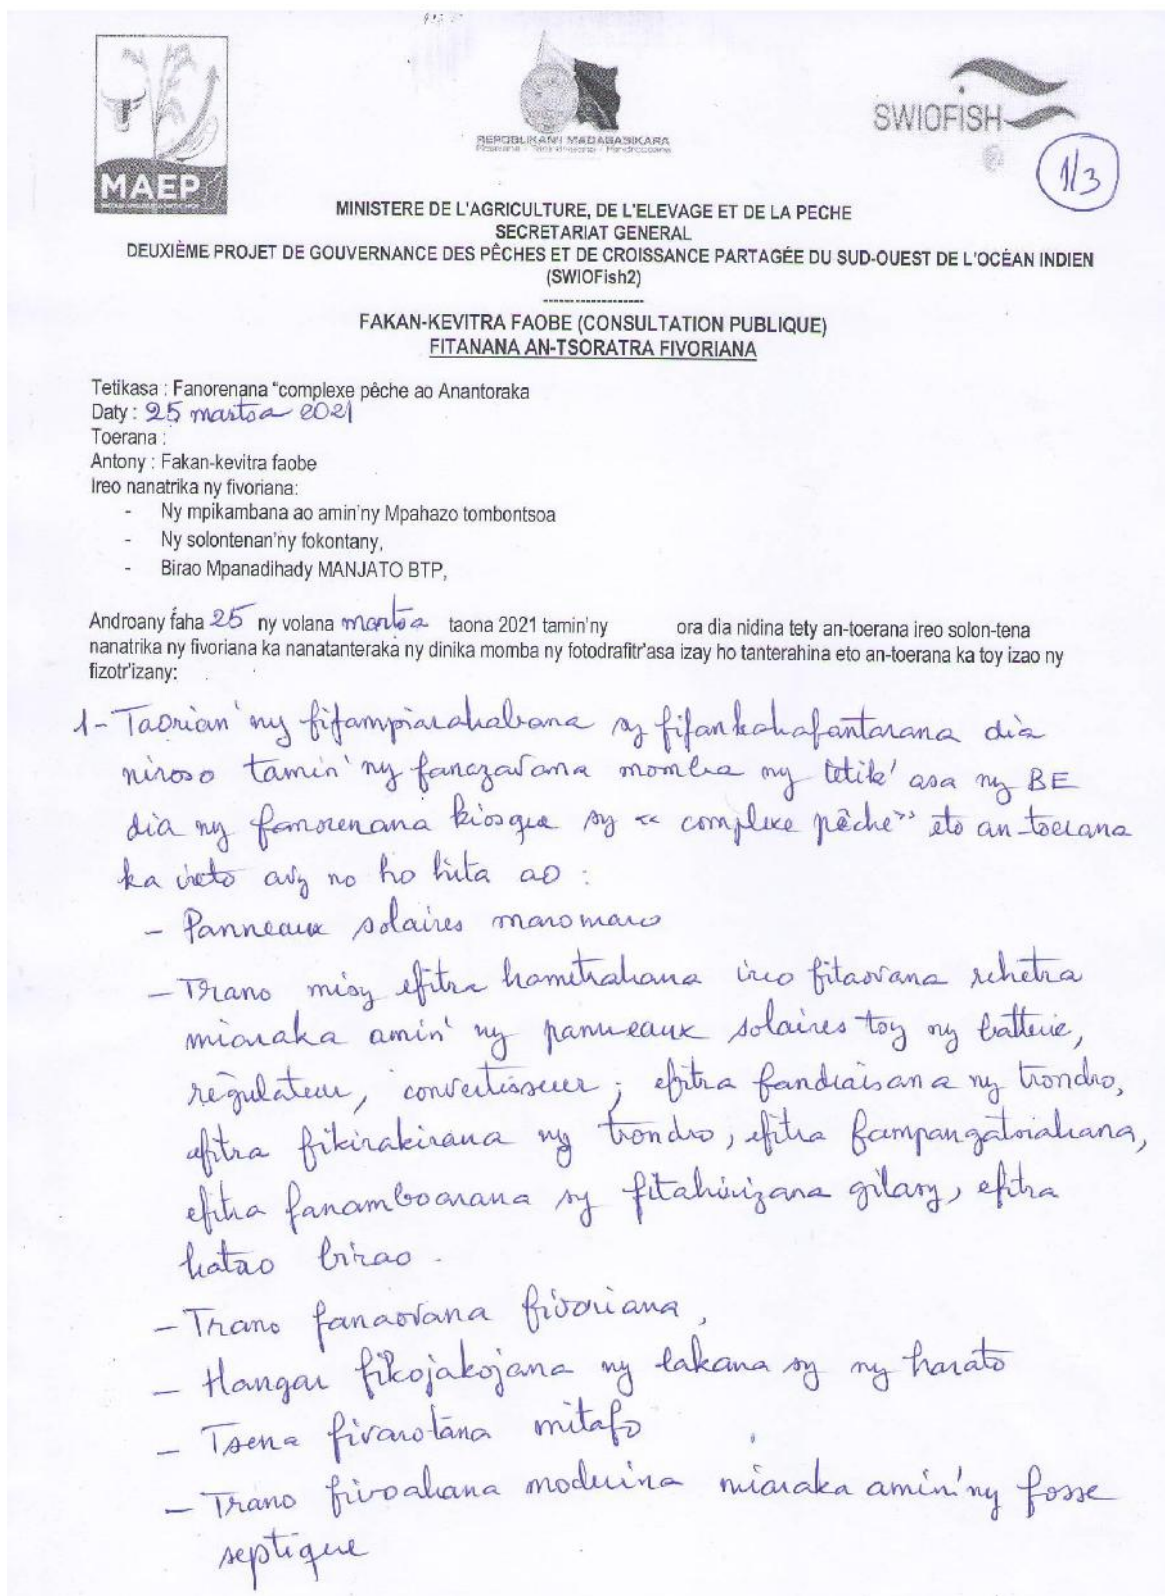 MAEP
REPOBLIKAN'I MADAGASIKARA
Fitiavana - Tanindrazana - Fandrosoana
SWIOFISH
1/3
MINISTERE DE L'AGRICULTURE, DE L'ELEVAGE ET DE LA PECHE
SECRETARIAT GENERAL
DEUXIÈME PROJET DE GOUVERNANCE DES PÊCHES ET DE CROISSANCE PARTAGÉE DU SUD-OUEST DE L'OCÉAN INDIEN
(SWIOFish2)
-------------------
FAKAN-KEVITRA FAOBE (CONSULTATION PUBLIQUE)
FITANANA AN-TSORATRA FIVORIANA
Tetikasa : Fanorenana "complexe pêche ao Anantoraka
Daty : 25 martsa 2021
Toerana :
Antony : Fakan-kevitra faobe
Ireo nanatrika ny fivoriana:
- Ny mpikambana ao amin'ny Mpahazo tombontsoa
- Ny solontenan'ny fokontany,
- Birao Mpanadihady MANJATO BTP,
Androany faha 25 ny volana martsa taona 2021 tamin'ny ora dia nidina tety an-toerana ireo solon-tena
nanatrika ny fivoriana ka nanatanteraka ny dinika momba ny fotodrafitr'asa izay ho tanterahina eto an-toerana ka toy izao ny
fizotr'izany:
1- Taorian'ny fifampiarahabana sy fifankahafantarana dia
niroso tamin'ny fanazavana momba ny tetik'asa ny BE
dia ny fanorenana kiosque sy "complexe pêche" eto an-toerana
ka ireto avy no ho hita ao :
- Panneaux solaires maromaro
- Trano misy efitra hametrahana ireo fitaovana rehetra
miaraka amin'ny panneaux solaires toy ny batterie,
régulateur, convertisseur ; efitra fandraisana ny trondro,
efitra fikirakirana ny trondro, efitra fampangatsiahana,
efitra fanamboarana sy fitahirizana gilasy, efitra
hatao birao.
- Trano fanaovana fivoriana,
- Hangar fikojakojana ny lakana sy ny harato
- Tsena fivarotana mitafo
- Trano fivoahana moderina miaraka amin'ny fosse
septique